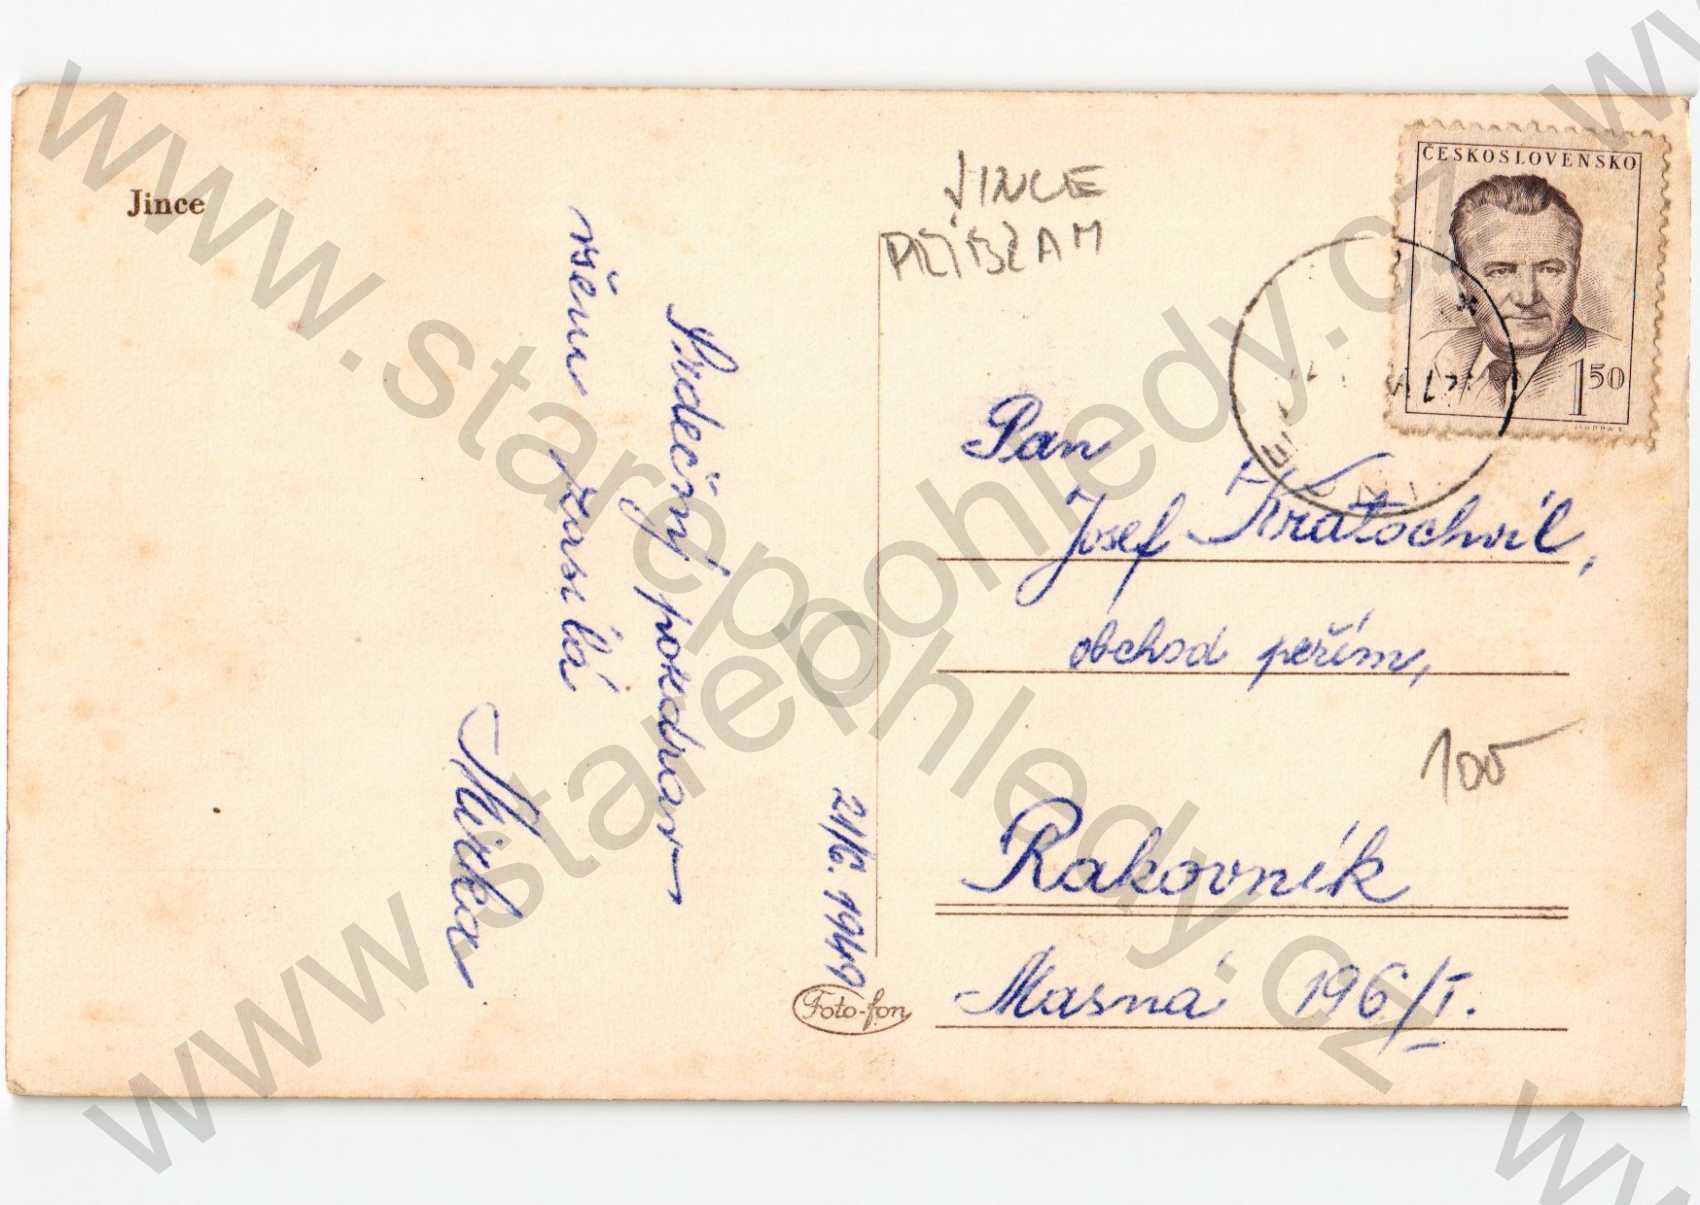 Jince
Srdečný pozdrav
všem zasílá
Mirka
21/6. 1949
Foto-fon
JINCE
PŘÍBRAM
ČESKOSLOVENSKO
1 50
Pan
Josef Kratochvíl,
obchod peřím,
100
Rakovník
Masná 196/I.
www.starepohledy.cz
www.starepohledy.cz